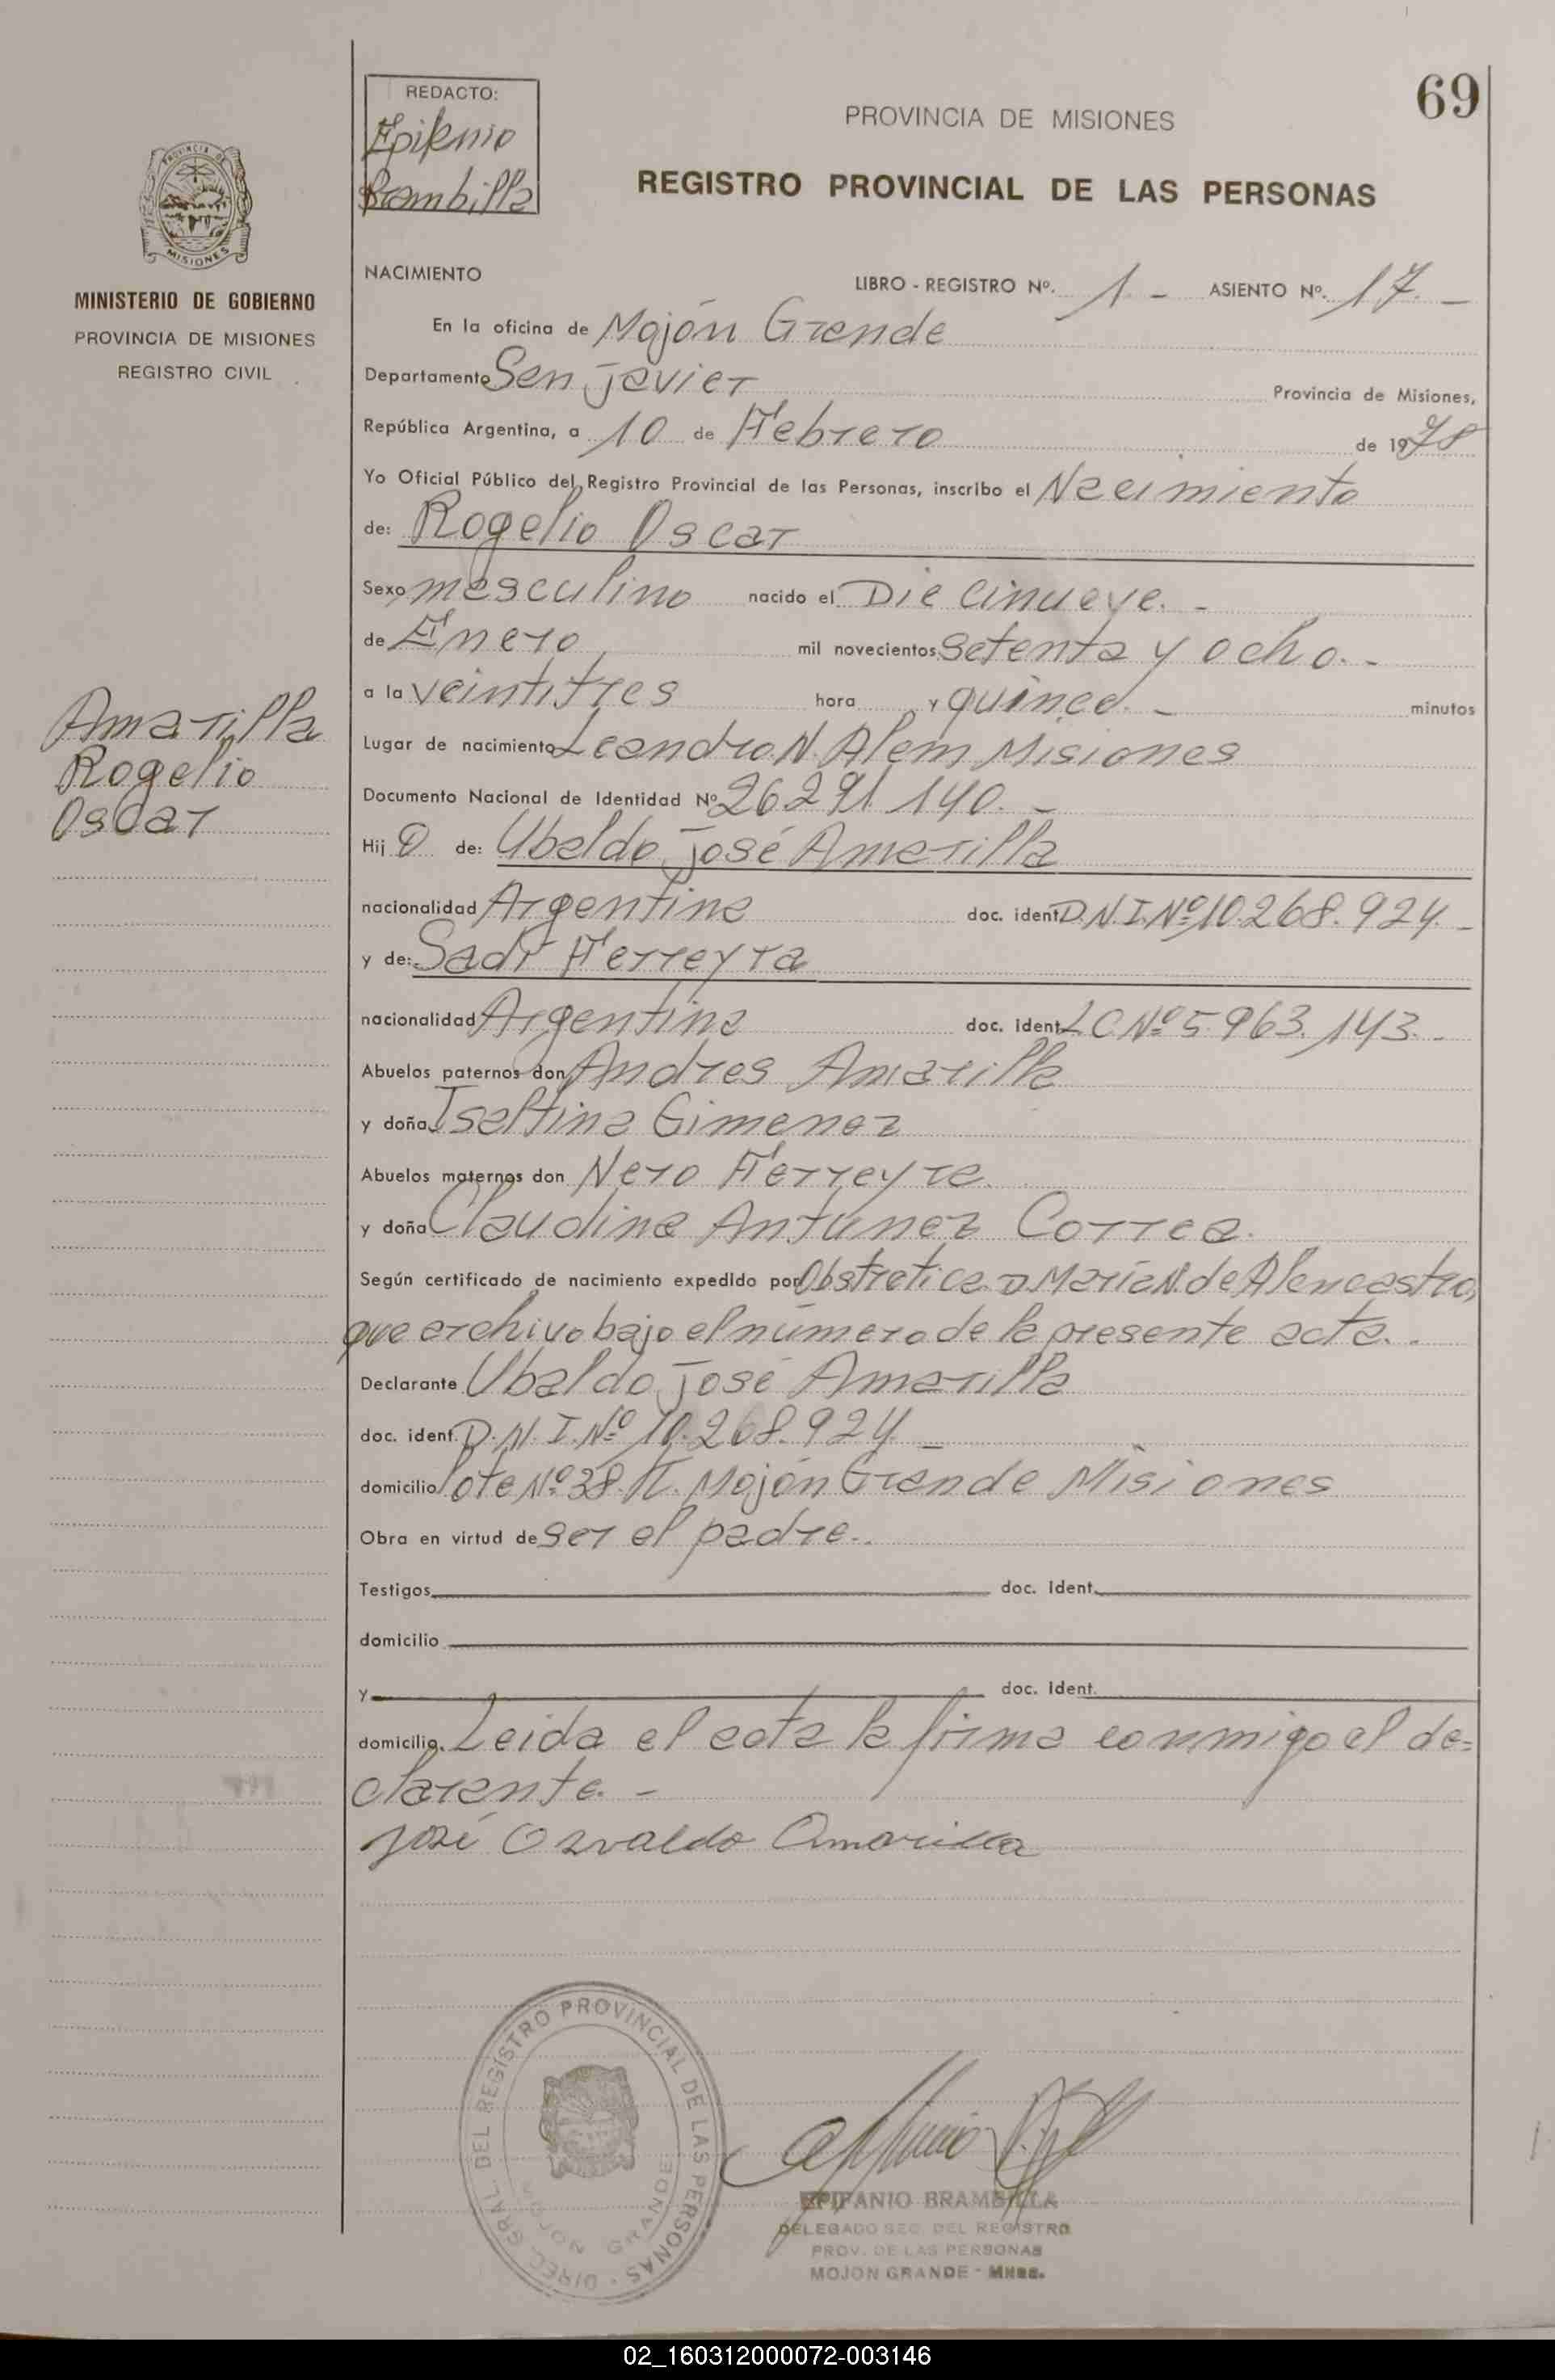 69
REDACTO:
Epifanio
Brambilla
PROVINCIA DE MISIONES
REGISTRO PROVINCIAL DE LAS PERSONAS
PROVINCIA DE
MISIONES
MINISTERIO DE GOBIERNO
PROVINCIA DE MISIONES
REGISTRO CIVIL
NACIMIENTO
LIBRO - REGISTRO Nº. 1 - ASIENTO Nº. 17. -
En la oficina de Mojón Grande
Departamento San Javier Provincia de Misiones,
República Argentina, a 10 de Febrero de 1978
Yo Oficial Público del Registro Provincial de las Personas, inscribo el Nacimiento
de: Rogelio Oscar
Sexo masculino nacido el Diecinueve. -
de Enero mil novecientos setenta y ocho. -
a la veintitres hora y quince. - minutos
Amarilla
Rogelio
Oscar
Lugar de nacimiento Leandro N. Alem Misiones
Documento Nacional de Identidad Nº 26.291.140. -
Hij o de: Ubaldo José Amarilla
nacionalidad Argentina doc. ident. D.N.I. Nº 10.268.924. -
y de: Sadi Ferreyra
nacionalidad Argentina doc. ident. L.C. Nº 5.963.143. -
Abuelos paternos don Andres Amarilla
y doña Isaltina Gimenez
Abuelos maternos don Nero Ferreyra.
y doña Claudina Antúnez Correa.
Según certificado de nacimiento expedido por Obstretica D. María N. de Alencastro,
que archivo bajo el número de la presente acta. .
Declarante Ubaldo José Amarilla
doc. ident. D.N.I. Nº 10.268.924. -
domicilio lote Nº 38. Mojón Grande Misiones
Obra en virtud de ser el padre. .
Testigos doc. ident.
domicilio
y doc. ident.
domicilio. Leida el acta la firma conmigo el de=
clarante. -
José Osvaldo Amarilla
DIREC. GRAL. DEL REGISTRO PROVINCIAL DE LAS PERSONAS -
MOJON GRANDE
EPIFANIO BRAMBILLA
DELEGADO SEC. DEL REGISTRO
PROV. DE LAS PERSONAS
MOJON GRANDE - Mnes.
02_160312000072-003146